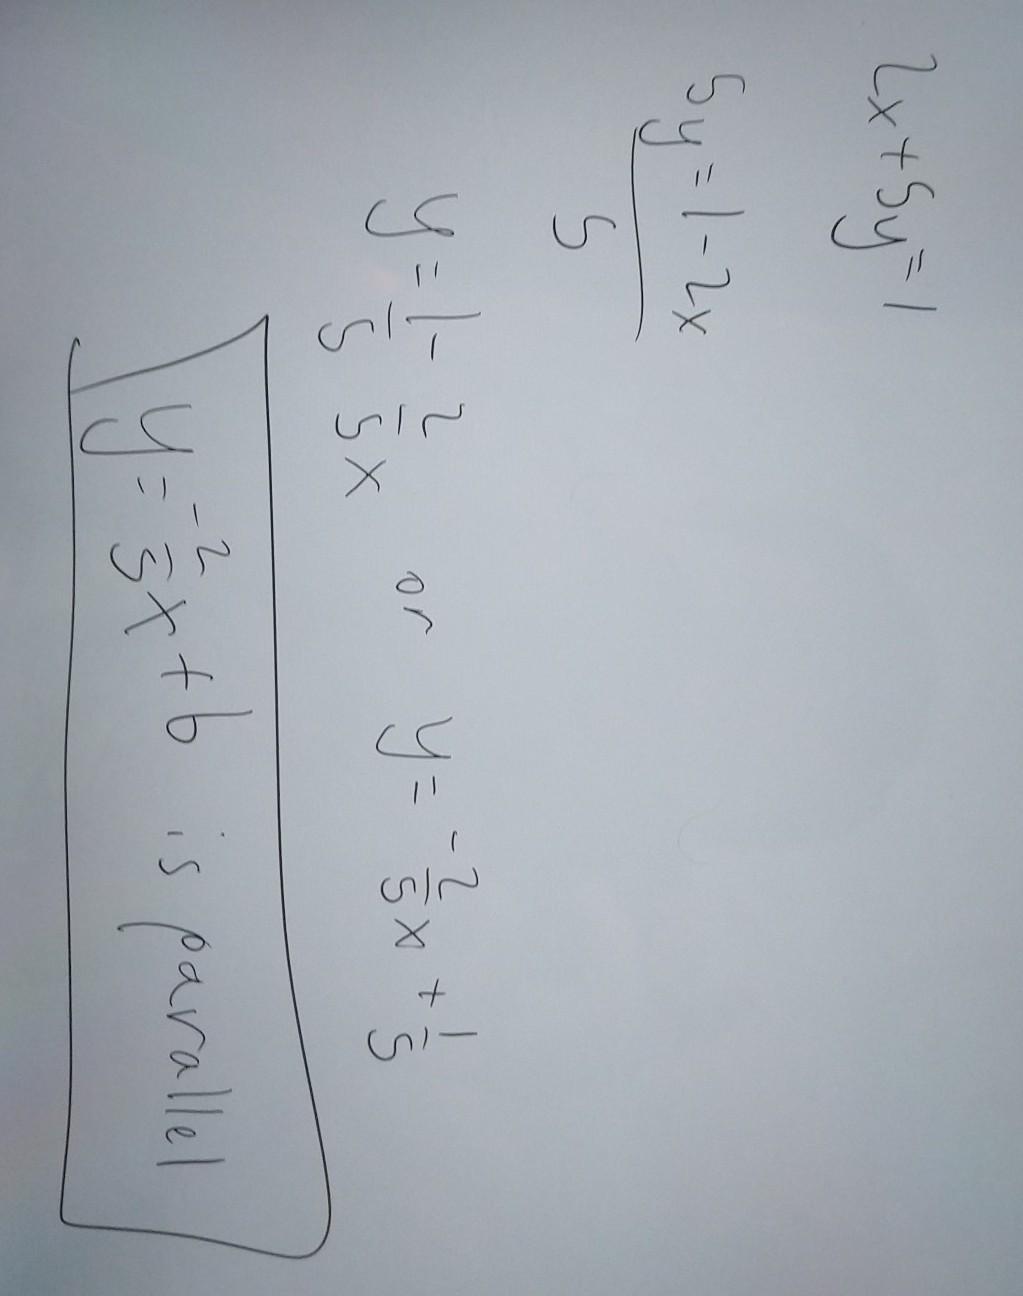 2x + 5y = 1
5y = 1 - 2x
5
y = 1/5 - 2/5 x or y = -2/5 x + 1/5
y = -2/5 x + b is parallel